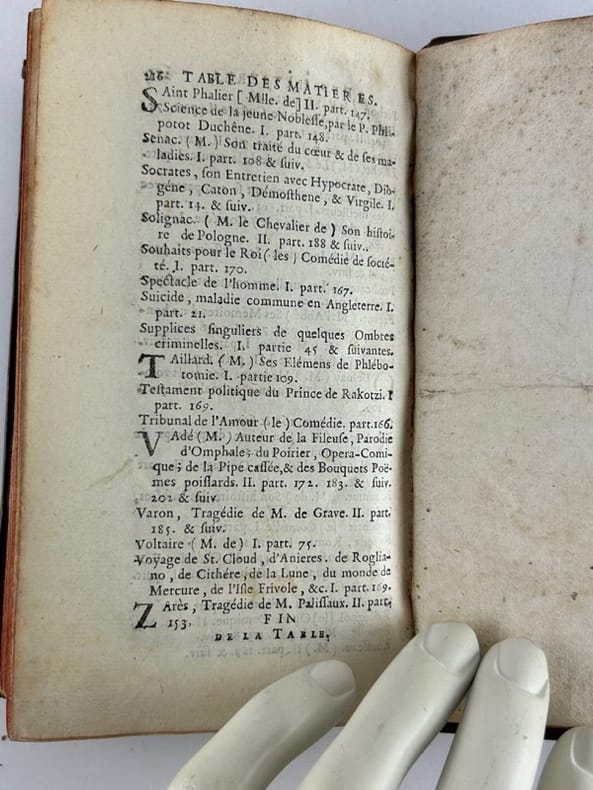 216 TABLE DES MATIERES.
Saint Phalier [ Mlle. de] II. part. 147.
Science de la jeune Noblesse, par le P. Phili-
potot Duchêne. I. part. 148.
Senac. ( M. ) Son traité du cœur & de ses ma-
ladies. I. part. 108 & suiv.
Socrates, son Entretien avec Hypocrate, Dio-
géne, Caton, Démosthene, & Virgile. I.
part. 14. & suiv.
Solignac. ( M. le Chevalier de ) Son histoi-
re de Pologne. II. part. 188 & suiv.
Souhaits pour le Roi ( les ) Comédie de socié-
té. I. part. 170.
Spectacle de l'homme. I. part. 167.
Suicide, maladie commune en Angleterre. I.
part. 21.
Supplices singuliers de quelques Ombres
criminelles. I. partie 45 & suivantes.
TAillard. ( M. ) Ses Elémens de Phlébo-
tomie. I. partie 109.
Testament politique du Prince de Rakotzi. I
part. 169.
Tribunal de l'Amour ( le ) Comédie. part. 166.
VAdé ( M. ) Auteur de la Fileuse, Parodie
d'Omphale; du Poirier, Opera-Comi-
que; de la Pipe cassée, & des Bouquets Poë-
mes poissards. II. part. 172. 183. & suiv.
202 & suiv.
Varon, Tragédie de M. de Grave. II. part.
185. & suiv.
Voltaire ( M. de) I. part. 75.
Voyage de St. Cloud, d'Anieres. de Roglia-
no, de Cithére, de la Lune, du monde de
Mercure, de l'Isle Frivole, &c. I. part. 169.
ZArès, Tragédie de M. Palissaux. II. part.
153.
FIN
DE LA TABLE.